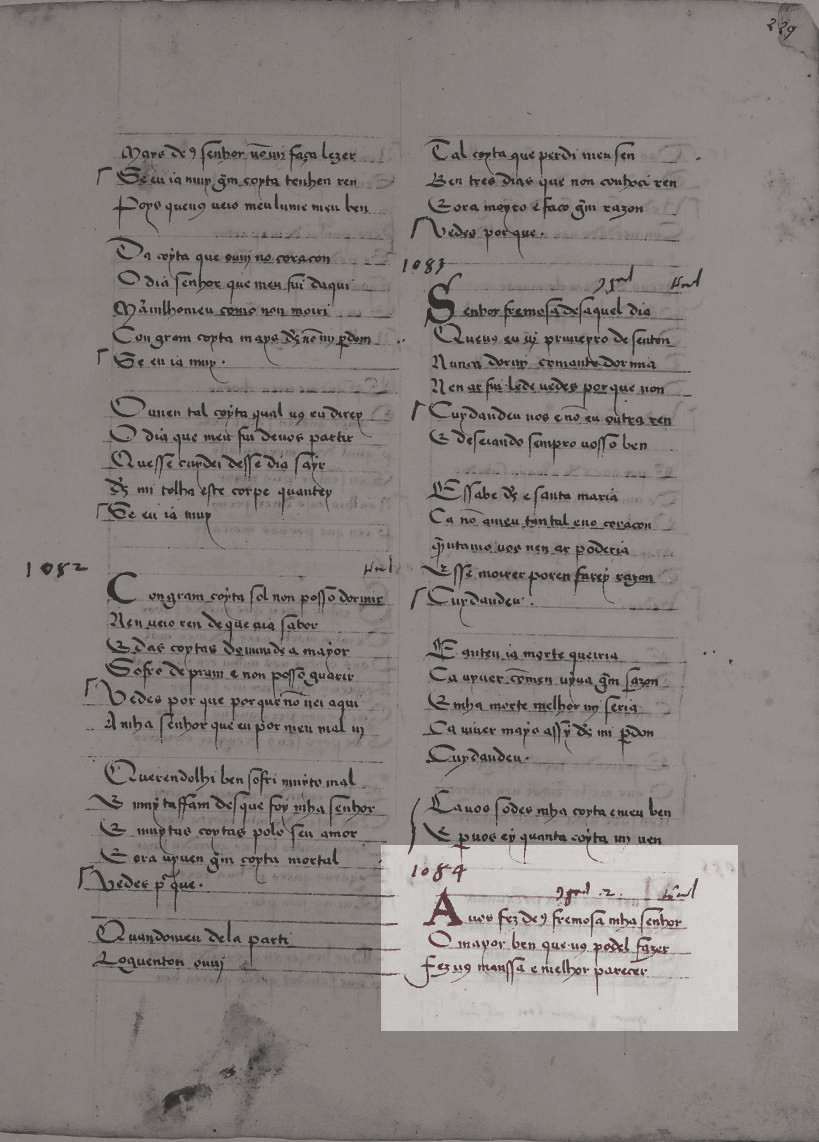 229
Mays de9 senhor nō mi faça lezer
Se eu ia muy grā coyta tenhen ren
Poys queu9 ueio meu lume meu ben
Da coyta que ouui no coraçon
O dia senhor que meu fui daqui
como non moiri
Con gram coyta mays d's nō my pdom
Se eu ia muy.
Ouuen tal coyta qual u9 eu direy
O dia que meu fui deuos partir
Quesse cuydei desse dia sayr
d's mi tolha este corpe quantey
Se eu ia muy
1082
Con gram coyta sol non posso dormir
Nen ueio ren de que aia sabor
E das coytas do mundo a mayor
Sofro de pram e non posso guarir
Vedes por que por que nō uei aqui
A mha senhor que eu por meu mal ui
Querendolhi ben sofri muyto mal
E muyt affam des que foy mha senhor
E muytas coytas polo seu amor
E ora uyuen grā coyta mortal
Vedes p' que.
Quandomeu dela parti
Loguenton ouuj
Tal coyta que perdi meu sen
Ben tres dias que non conhoci ren
E ora moyro e faço grā razon
Vedes por que.
1083
Senhor fremosa desaquel dia
Queu9 eu uj primeyro desenton
Nunca dormy comante dormia
Nen ar fui lede uedes por que non
Cuydandeu uos e nō eu outra ren
E deseiando sempro uosso ben
E ssabe d's e santa maria
Ca nō ameu tan tal eno coraçon
Quutamo uos nen ar poderia
E sse moirer poren farey razon
Cuydandeu.
E anten ia morte queiria
Ca uyuer comen uyua grā sazon
E mha morte melhor my seria
Ca uiuer mays assy d's mi pdon
Cuydandeu.
Ca uos sodes mha coyta e meu ben
E p uos ey quanta coyta mi uen
1084
A uos fez de9 fremosa mha senhor
O mayor ben que u9 podel fazer
Fez u9 manssa e melhor parecer